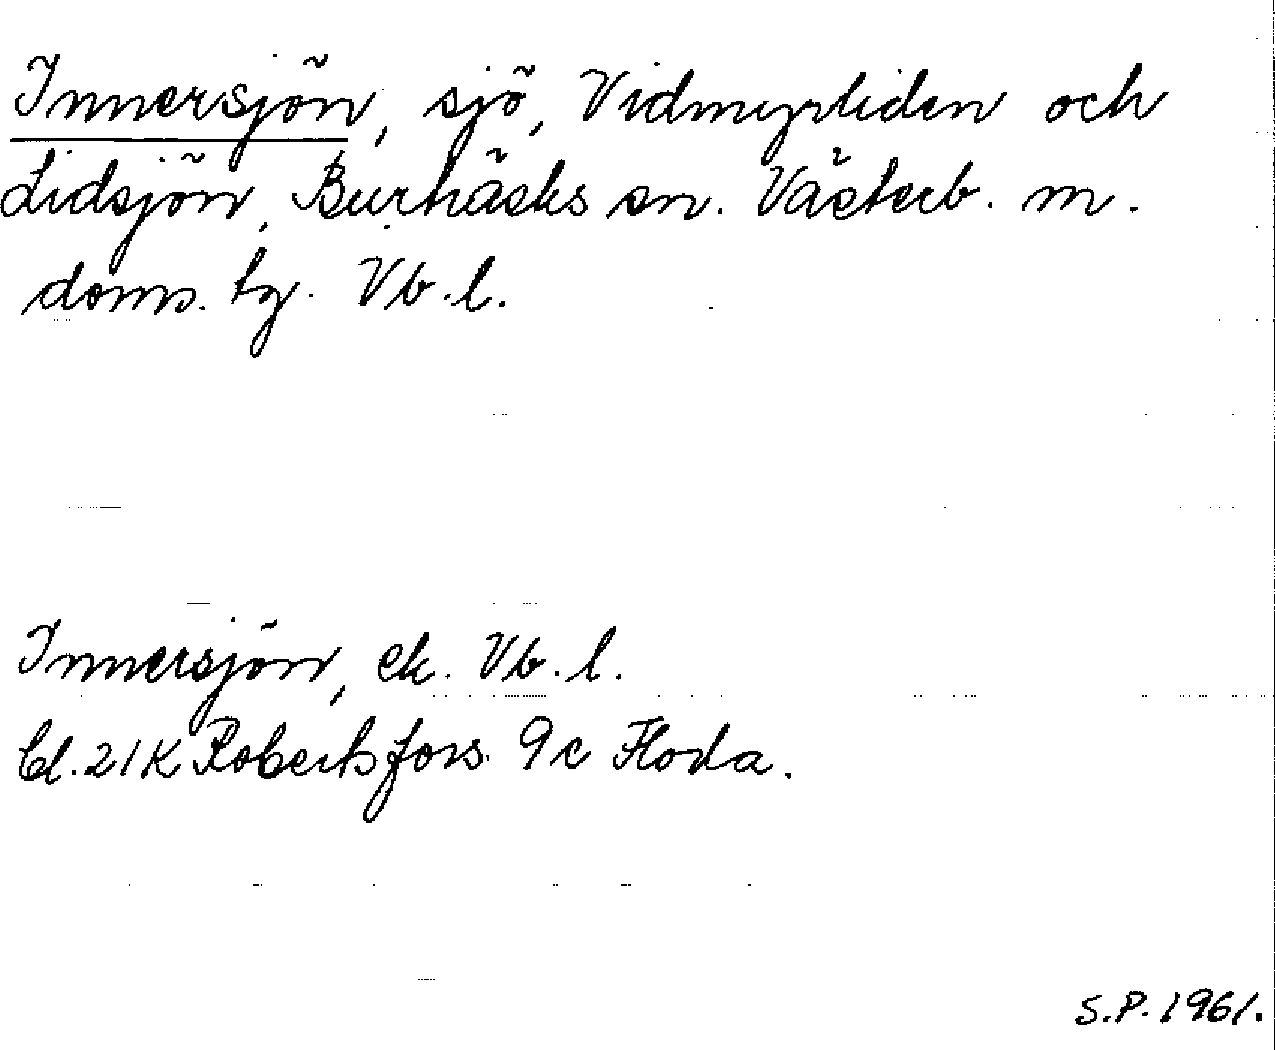 Innersjön, sjö, Vidmyrliden och
Lidsjön, Burträsks sn. Västerb. m.
doms. tg. Vb. l.
Innersjön, ek. Vb. l.
bl. 21K Robertsfors 9c Floda.
S.P. 1961.